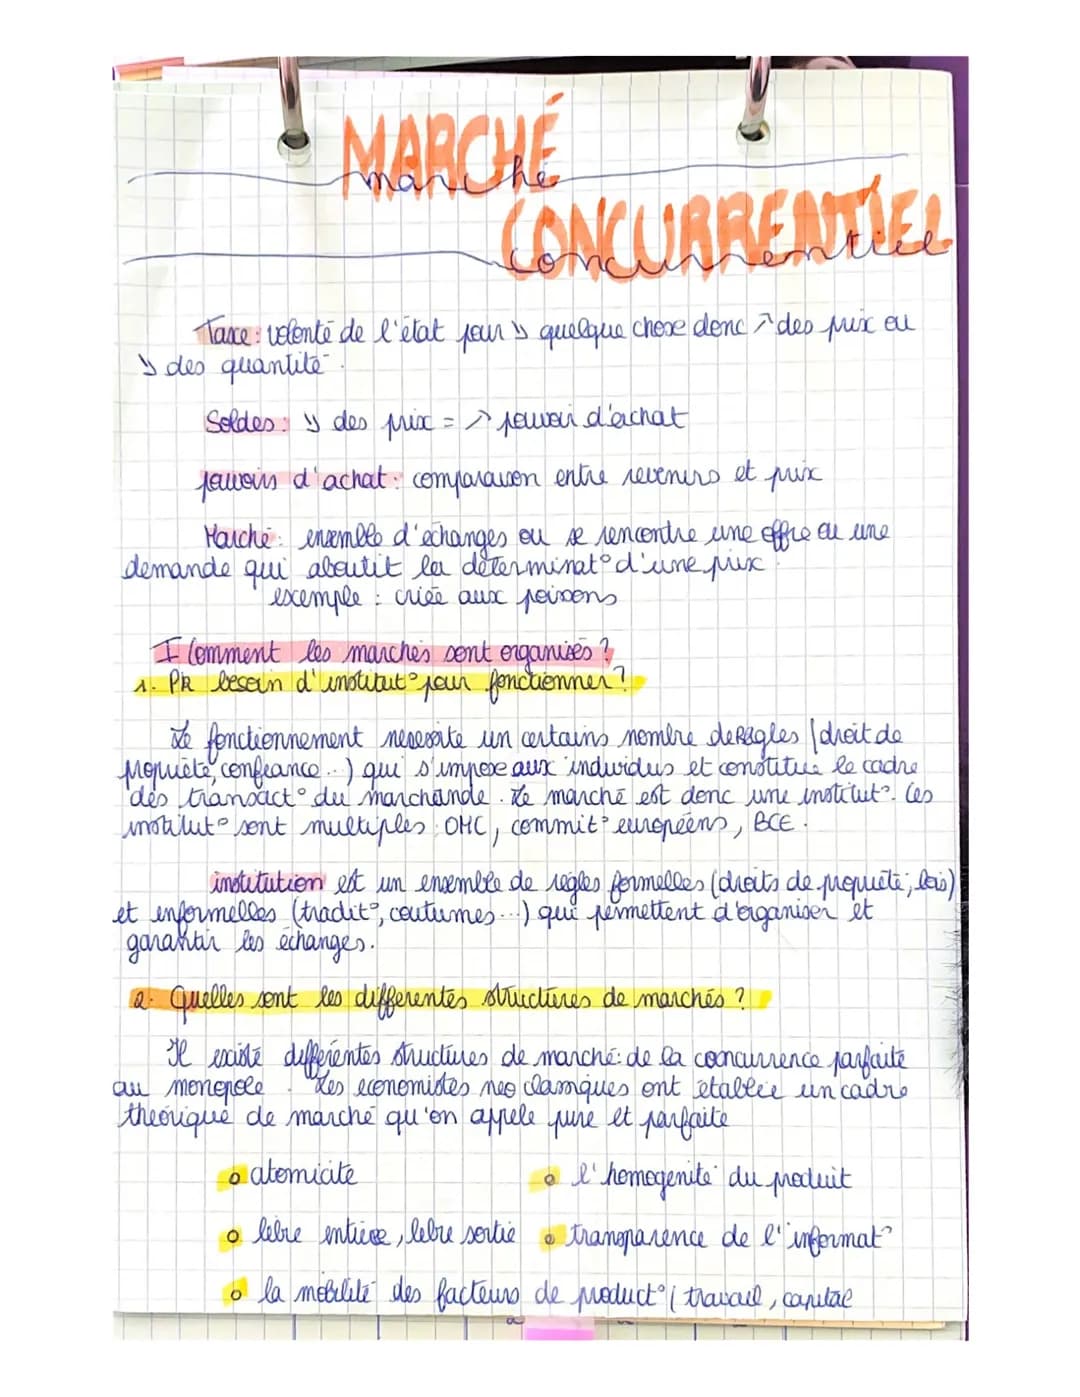 MARCHÉ
marché
CONCURRENTIEL
concurrentiel
Taxe : volonté de l'état pour ↘ quelque chose donc ↗ des prix ou
↘ des quantité.
Soldes : ↘ des prix = ↗ pouvoir d'achat
pouvoirs d'achat : comparaison entre revenus et prix
Marché : ensemble d'échanges ou se rencontre une offre ou une
demande qui aboutit la déterminat° d'une prix.
exemple : criée aux poissons
I Comment les marchés sont organisés ?
1. PK besoin d'institut° pour fonctionner ?
Le fonctionnement necessite un certains nombre de Règles (droit de
propriété, confiance...) qui s'impose aux individus et constitue le cadre
des transact° du marchande. Le marché est donc une institut°. Ces
institut° sont multiples : OMC, commit° européens, BCE.
institution est un ensemble de règles formelles (droits de propriété ; lois)
et informelles (tradit°, coutumes...) qui permettent d'organiser et
garantir les échanges.
2. Quelles sont les differentes structures de marchés ?
Il existe différentes structures de marché : de la concurrence parfaite
au monopole. Les economistes neo classiques ont établie un cadre
theorique de marché qu'on appele pure et parfaite
o atomicité o l'homogenité du produit
o libre entiree, libre sortie o transparence de l'informat°
o la mobilité des facteurs de product° ( travail, capital